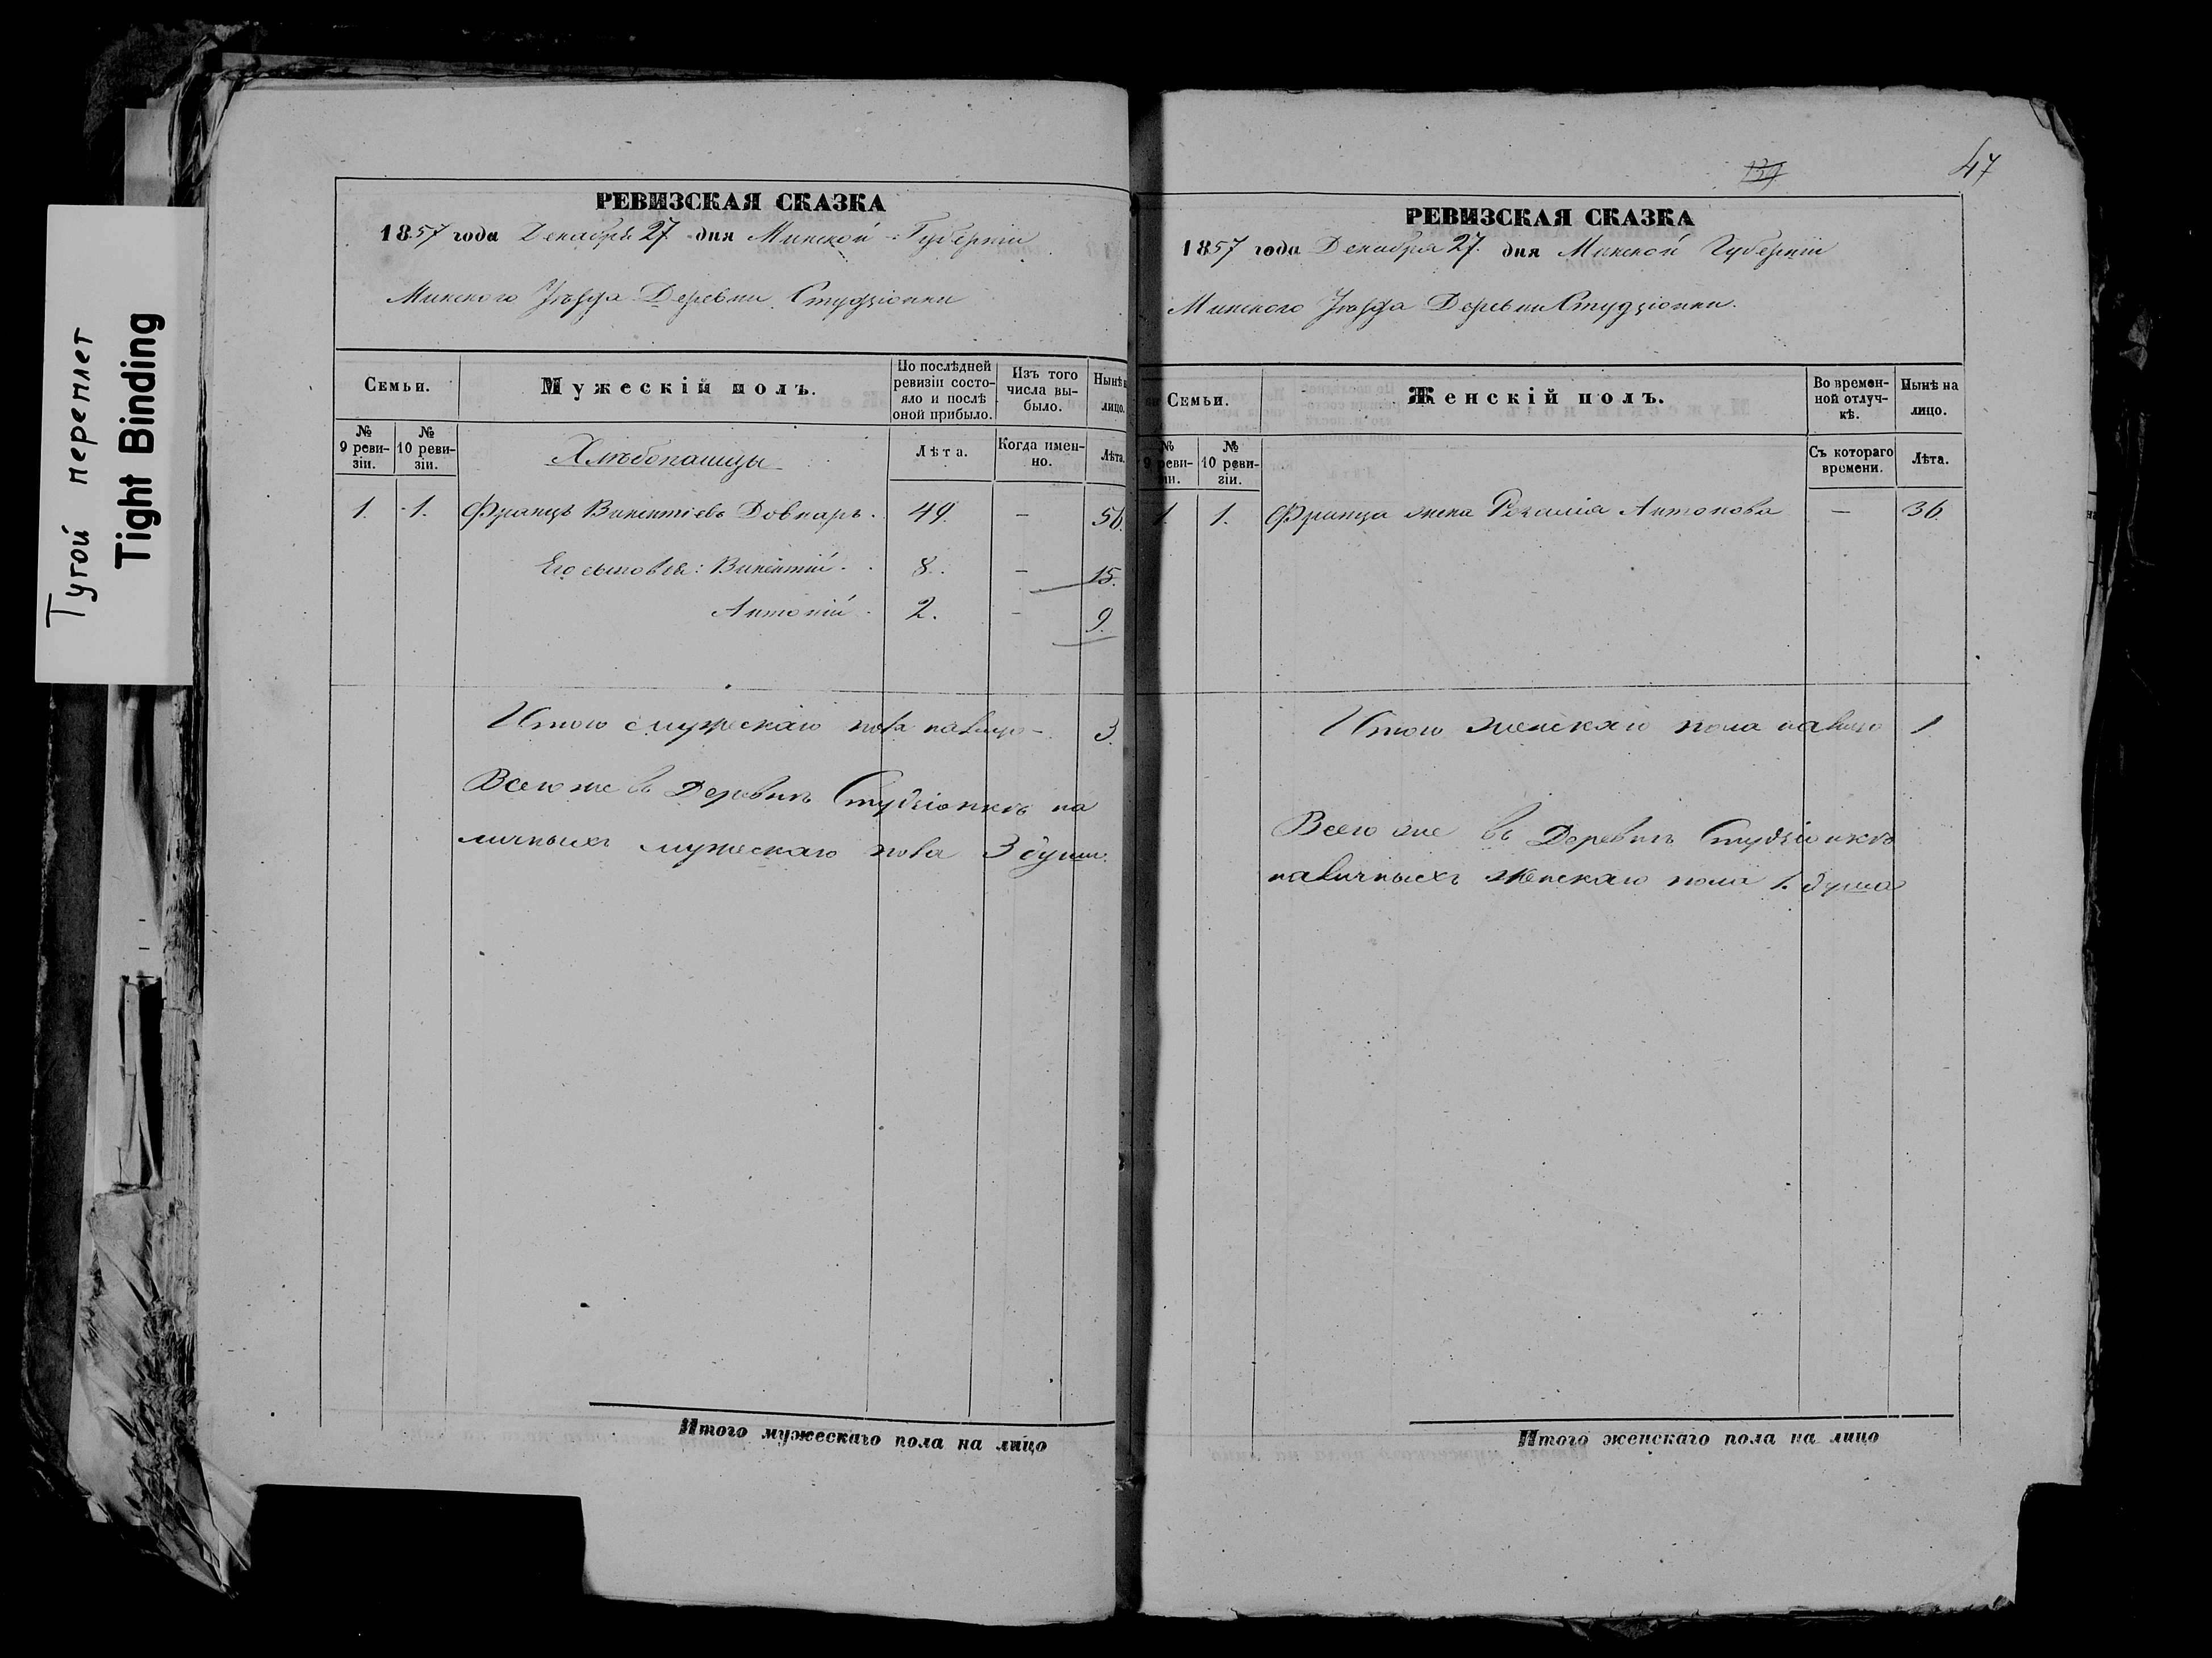 Тугой переплет
Tight Binding
РЕВИЗСКАЯ СКАЗКА
1857 года Декабря 27 дня Минской Губерніи
Минского Уѣзда Деревни Студзіонки
Семьи.
Мужескій полъ.
По послѣдней ревизіи состояло и послѣ оной прибыло.
Изъ того числа выбыло.
Нынѣ лицо.
№ 9 ревизіи.
№ 10 ревизіи.
Хлѣбопашцы
Лѣта.
Когда именно.
Лѣта.
1. 1. Францъ Викентіевъ Довнаръ. 49. — 56.
Его сыновья: Викентій. 8. — 15.
Антоній. 2. — 9.
Итого мужескаго пола налицо — 3.
Всего же въ Деревнѣ Студзіонкѣ на
личныхъ мужескаго пола 3 души.
Итого мужескаго пола на лицо
139
47
РЕВИЗСКАЯ СКАЗКА
1857 года Декабря 27. дня Минской Губерніи
Минского Уѣзда Деревни Студзіонки.
Семьи.
Женскій полъ.
Во временной отлучкѣ.
Нынѣ на лицо.
№ 9 ревизіи.
№ 10 ревизіи.
Съ котораго времени.
Лѣта.
1. 1. Франца жена Розалія Антонова — 36
Итого женскаго пола налицо 1
Всего же въ Деревнѣ Студзіонкѣ
наличныхъ женскаго пола 1. душа
Итого женскаго пола на лицо